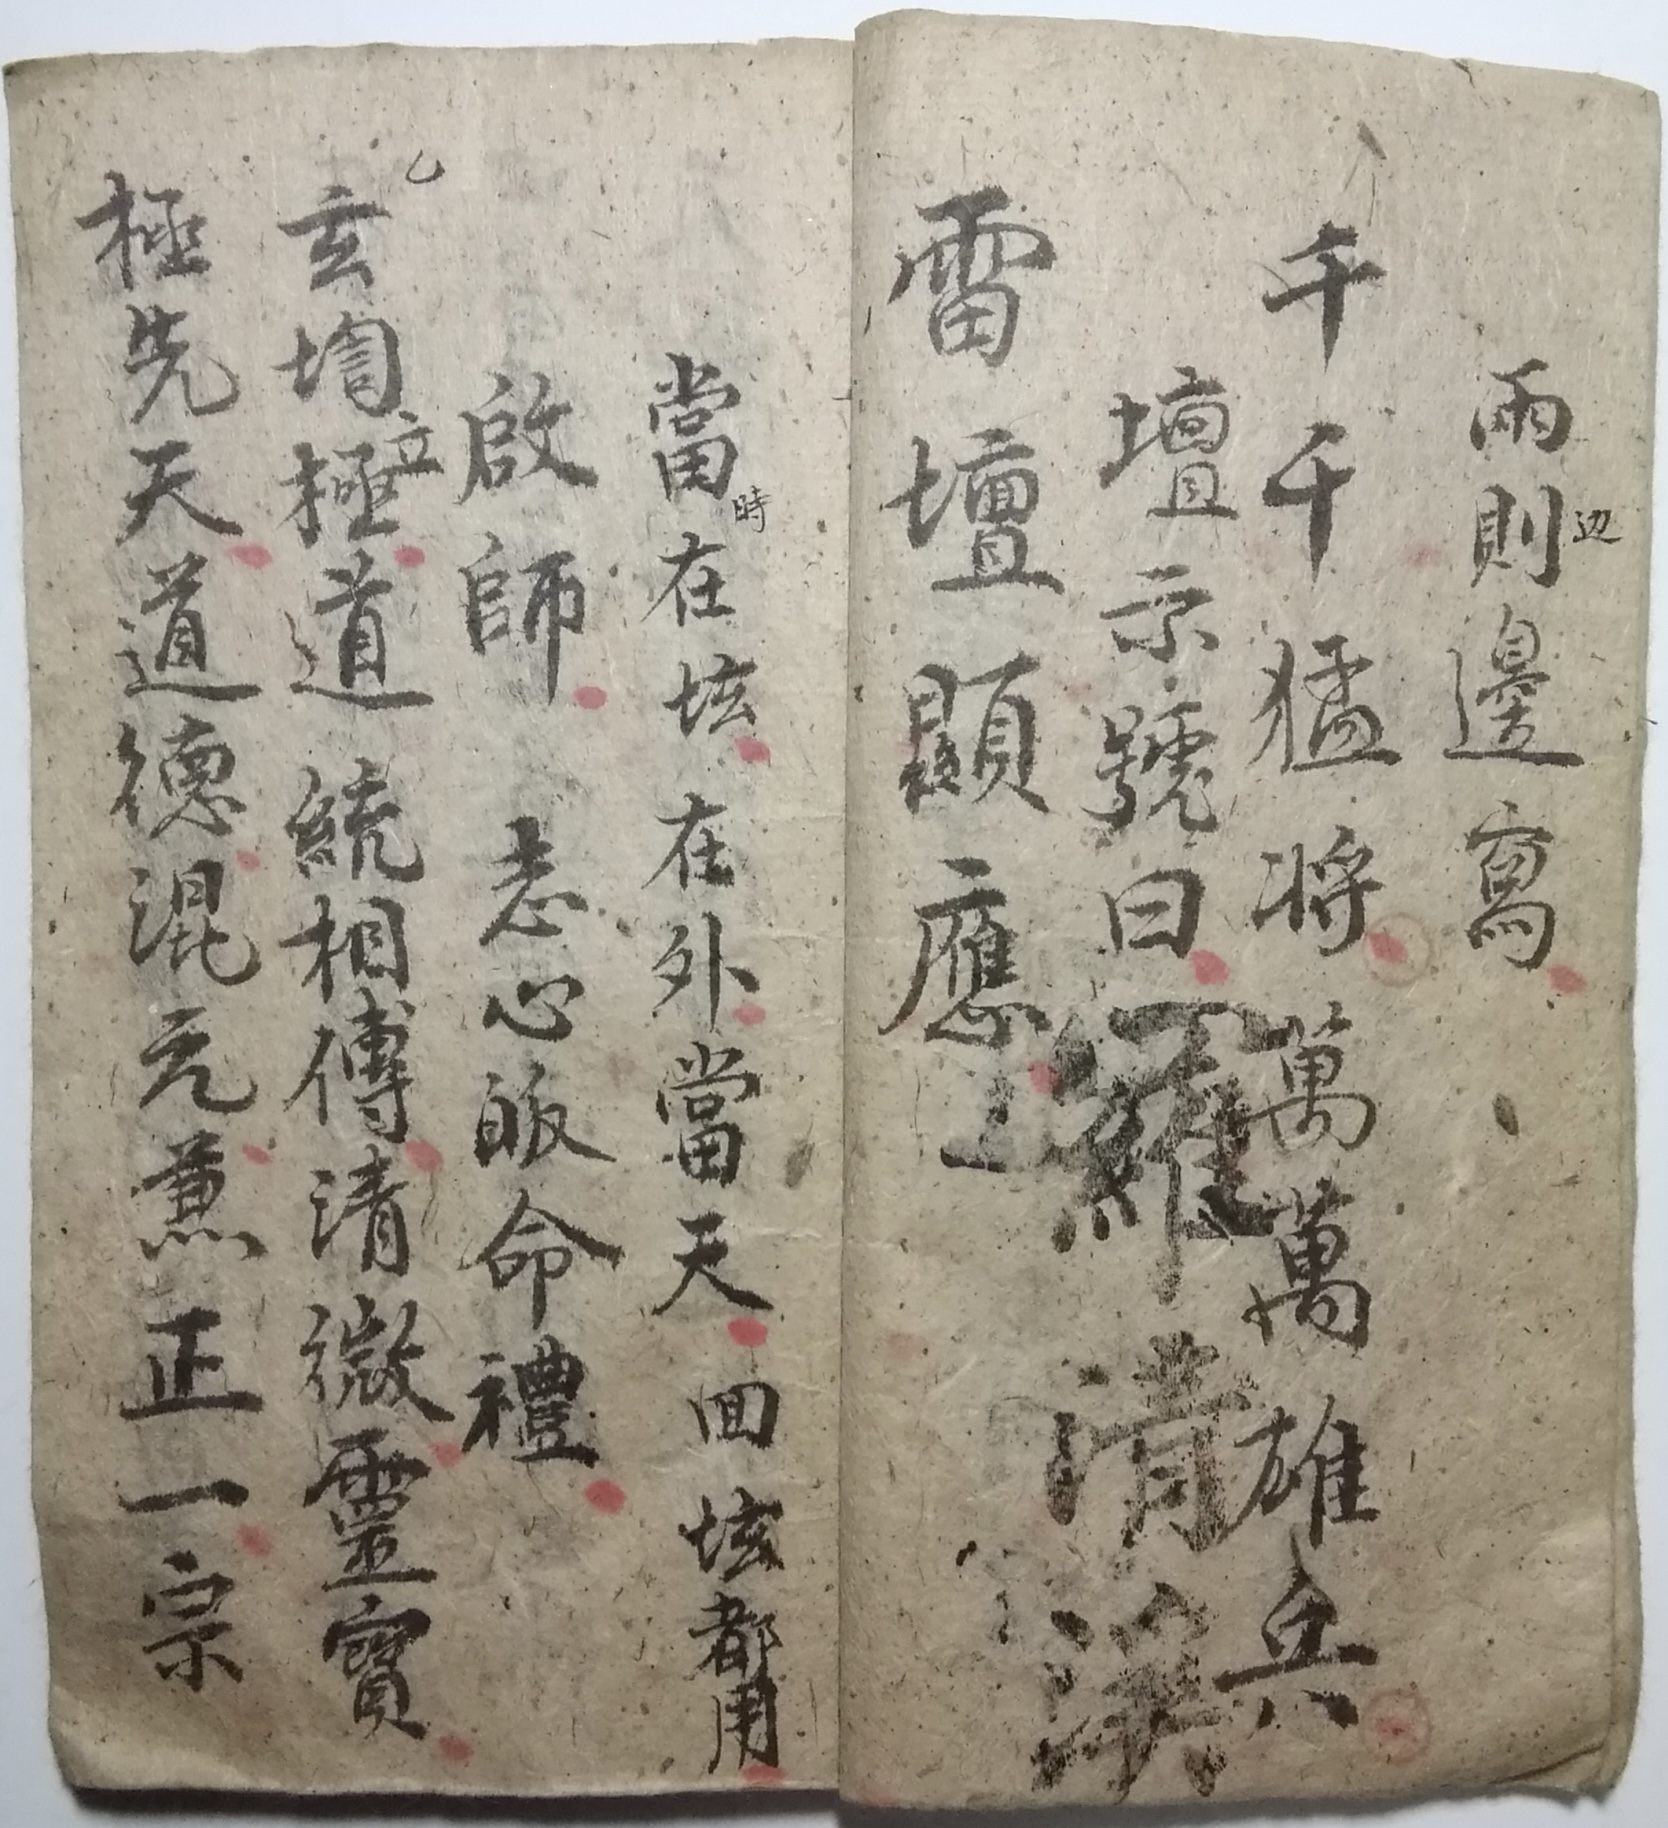 兩則邊寫
辺
千千猛將萬萬雄兵
壇示號曰羅清
雷壇顯應
當在坛在外當天回坛都用
時
啟師 志心皈命禮
玄極道統相傳清微靈寶
立
極先天道德混元兼正一宗